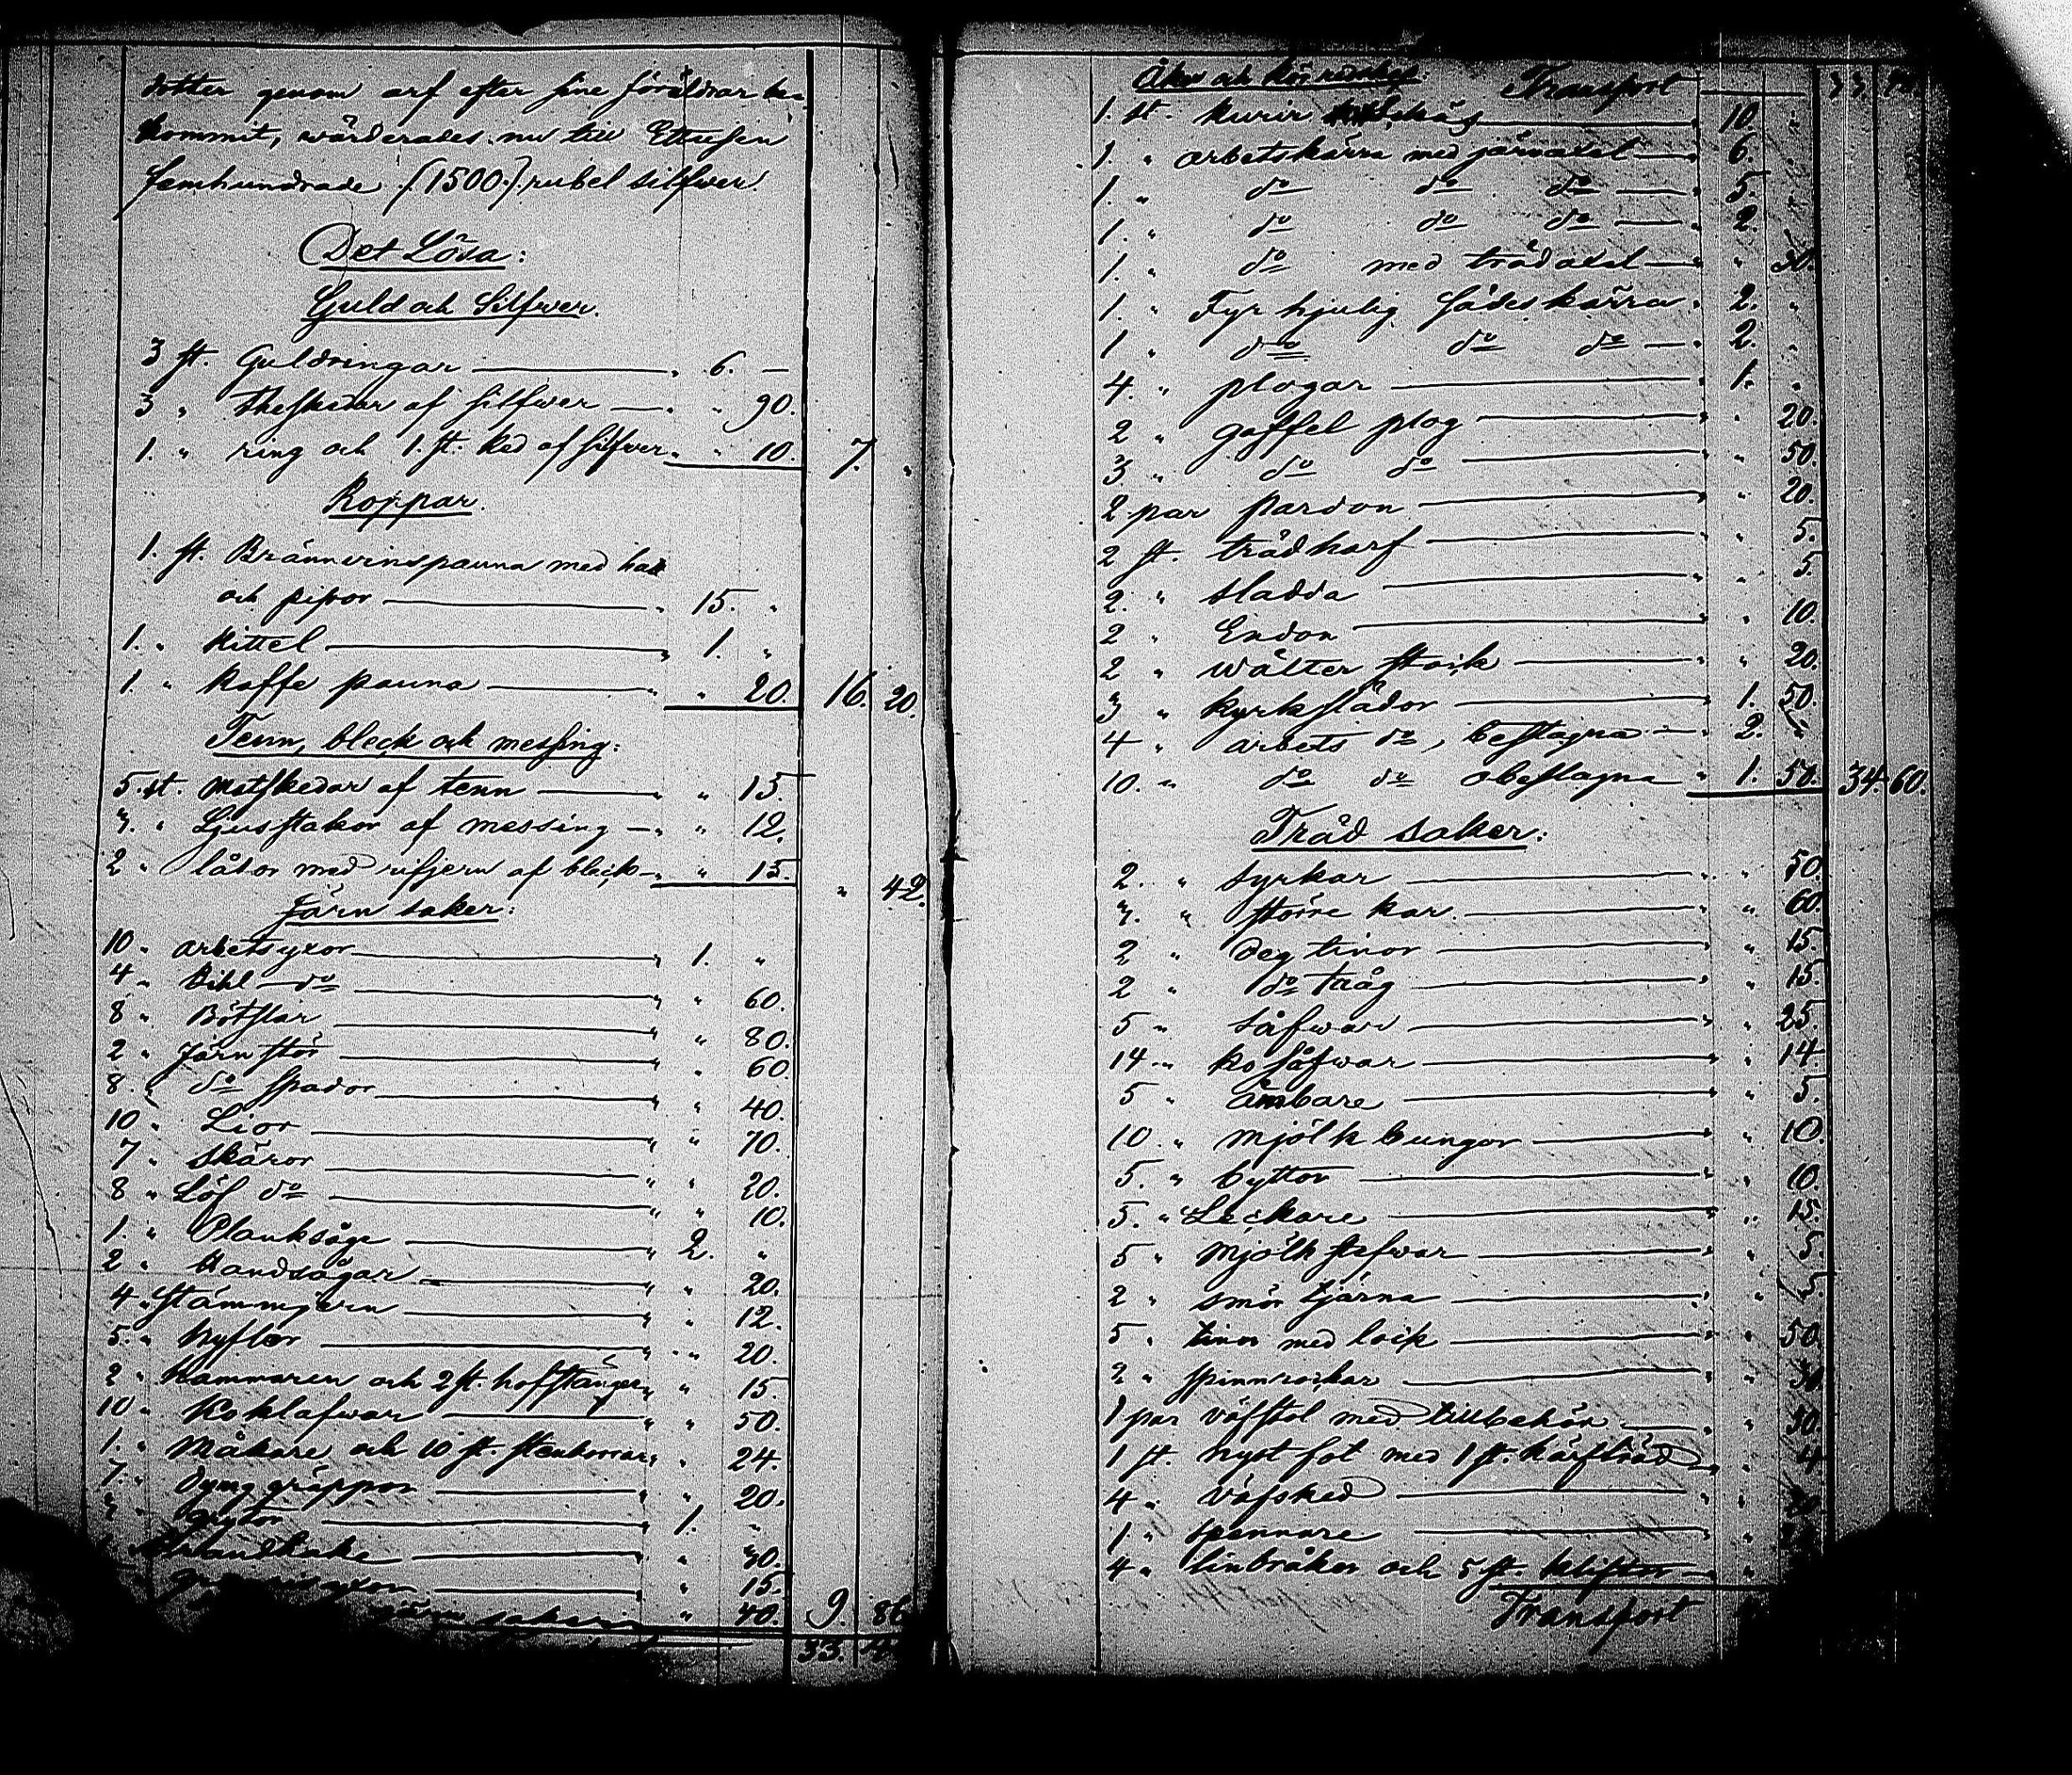 dotter genom arf efter sine föräldrar be-
kommit, wärderades nu till Ettusen
femhundrade (1500.) rubel silfwer.
Det Lösa:
Guld och Silfwer.
3 st. Guldringar — " 6. —
3 " Theskedar af silfwer — " " 90.
1. " ring och 1. st. ked af silfwer " " 10. 7. "
Koppar.
1. st. Brännvinspanna med hatt
och pipor — " 15. "
1. " Kittel — " 1. "
1. " Kaffe panna — " " 20. 16. 20.
Tenn, bleck och messing:
5. st. matskedar af tenn — " " 15.
3. " Ljusstakar af messing — " " 12.
2 " låter med rifjern af bleck — " " 15. " 42.
Järn saker:
10 " arbetsyxor — " 1. "
4 " bihl do — " " 60.
8 " Bötslar — " " 80.
2 " Järn stör — " " 60.
8. " do spador — " " 40.
10 " Lior — " " 70.
7 " Skäror — " " 20.
8 " Löf do — " " 10.
1. " Planksåge — " 2. "
2 " Handsågar — " " 20.
4 " Stämmjern — " " 12.
5. " hyflar — " " 20.
2 " Hammaren och 2 st. hofstänger " " 15.
10 " Koklafwar — " " 50.
1. " Måkare och 10 st. stenborrar " " 24.
7. " Dyng gräppor — " " 20.
grytor — " 1. "
brandhake — " " 30.
— " " 15.
järn saker " " 40. 9. 86
33.
Åker och Kör redskap: Transport 33
1. st. kurir — 10 "
1. " arbetskärra med järnaxel — 6.
1. " do do do — 5
1. " do do do — 2.
1. " do med trädaxel — "
1. " Fyrhjulig sädes kärra " 2. "
1 " do do do — 2. "
4. " plogar — 1. "
2 " gaffel plog — " 20.
3 " do do — " 50.
2 par pardon — " 20.
2 st. trädharf — " 5.
2. " sladda — " 5.
2 " Endon — " 10.
2 " wälter stock — " 20.
3 " Kyrkslädor — " 1. 50.
4 " arbets do, beslagna — " 2. "
10. " do do obeslagna " 1. 50. 34. 60.
Träd saker:
2. " byrkar — " " 50.
3. " större kar. — " " 60.
2 " deg tinor — " " 15.
2 " do tråg — " " 15.
5 " såfwar — " " 25.
14 " ko såfwar — " " 14
5 " ämbare — " " 5.
10. " mjölk bungor — " " 10.
5. " byttor — " " 10.
5. " Leckare — " " 15.
5 " mjölk stefwar — " " 5.
2 " smör tjärna — " " 5.
5 " tinor med lock — " " 50.
2 " spinnrockar — " " 30
1 par väfstol med tillbehör — " " 50.
1 st. nyst fot med 1 st. härfträd — " " 4
4 " väfsked —
1 " spannare —
4 " linbråkor och 5 st. klifter —
Transport